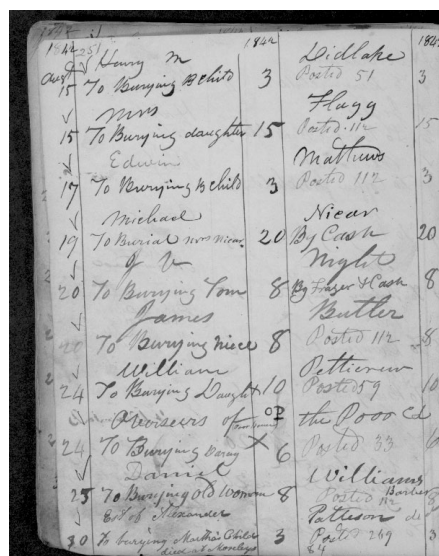 1842 1842 1842
Aug 251 Henry M Didlake
15 To Burying B Child 3 Posted 51 3
Mrs Flagg
15 To Burying daughter 15 Posted 112 15
Edwin Mathews
17 To Burying B child 3 Posted 112 3
Michael Nicar
19 To Burial Mrs Nicar 20 By Cash 20
J V Night
20 To Burying Tom 8 By Frazer & Cash 8
James Butler
20 To Burying niece 8 Posted 112 8
William Petticrew
24 To Burying Daught 10 Posted 59 10
Overseers of OP the Poor
24 To Burying X 6 Posted 33 6
Daniel Williams
25 To Burying Old Woman 8 Posted 112 Barber 8
Est of Alexander Patteson
30 To burying Marthas Child 3 Posted 269 3
died at Mosleys 84